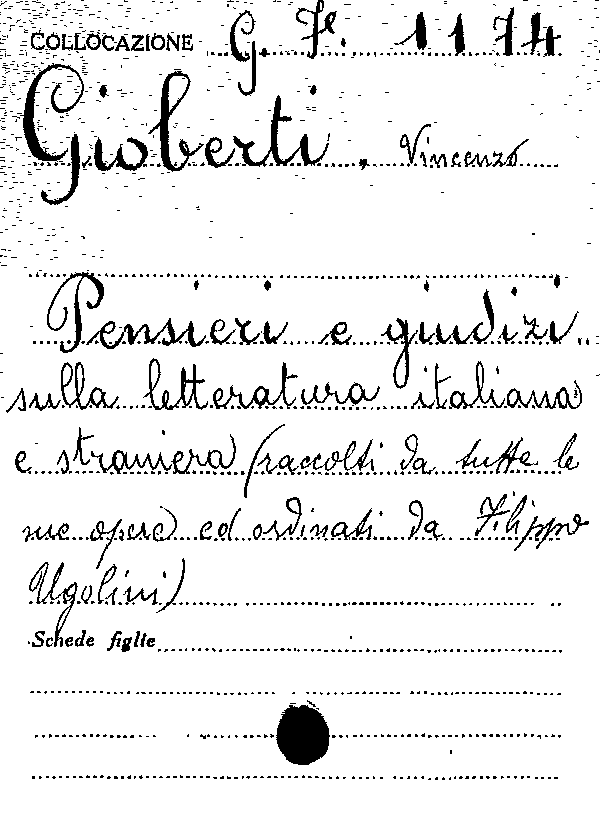 COLLOCAZIONE G. Fe. 1174
Gioberti, Vincenzo
Pensieri e giudizi
sulla letteratura italiana
e straniera (raccolti da tutte le
sue opere) ed ordinati da Filippo
Ugolini)
Schede figlie